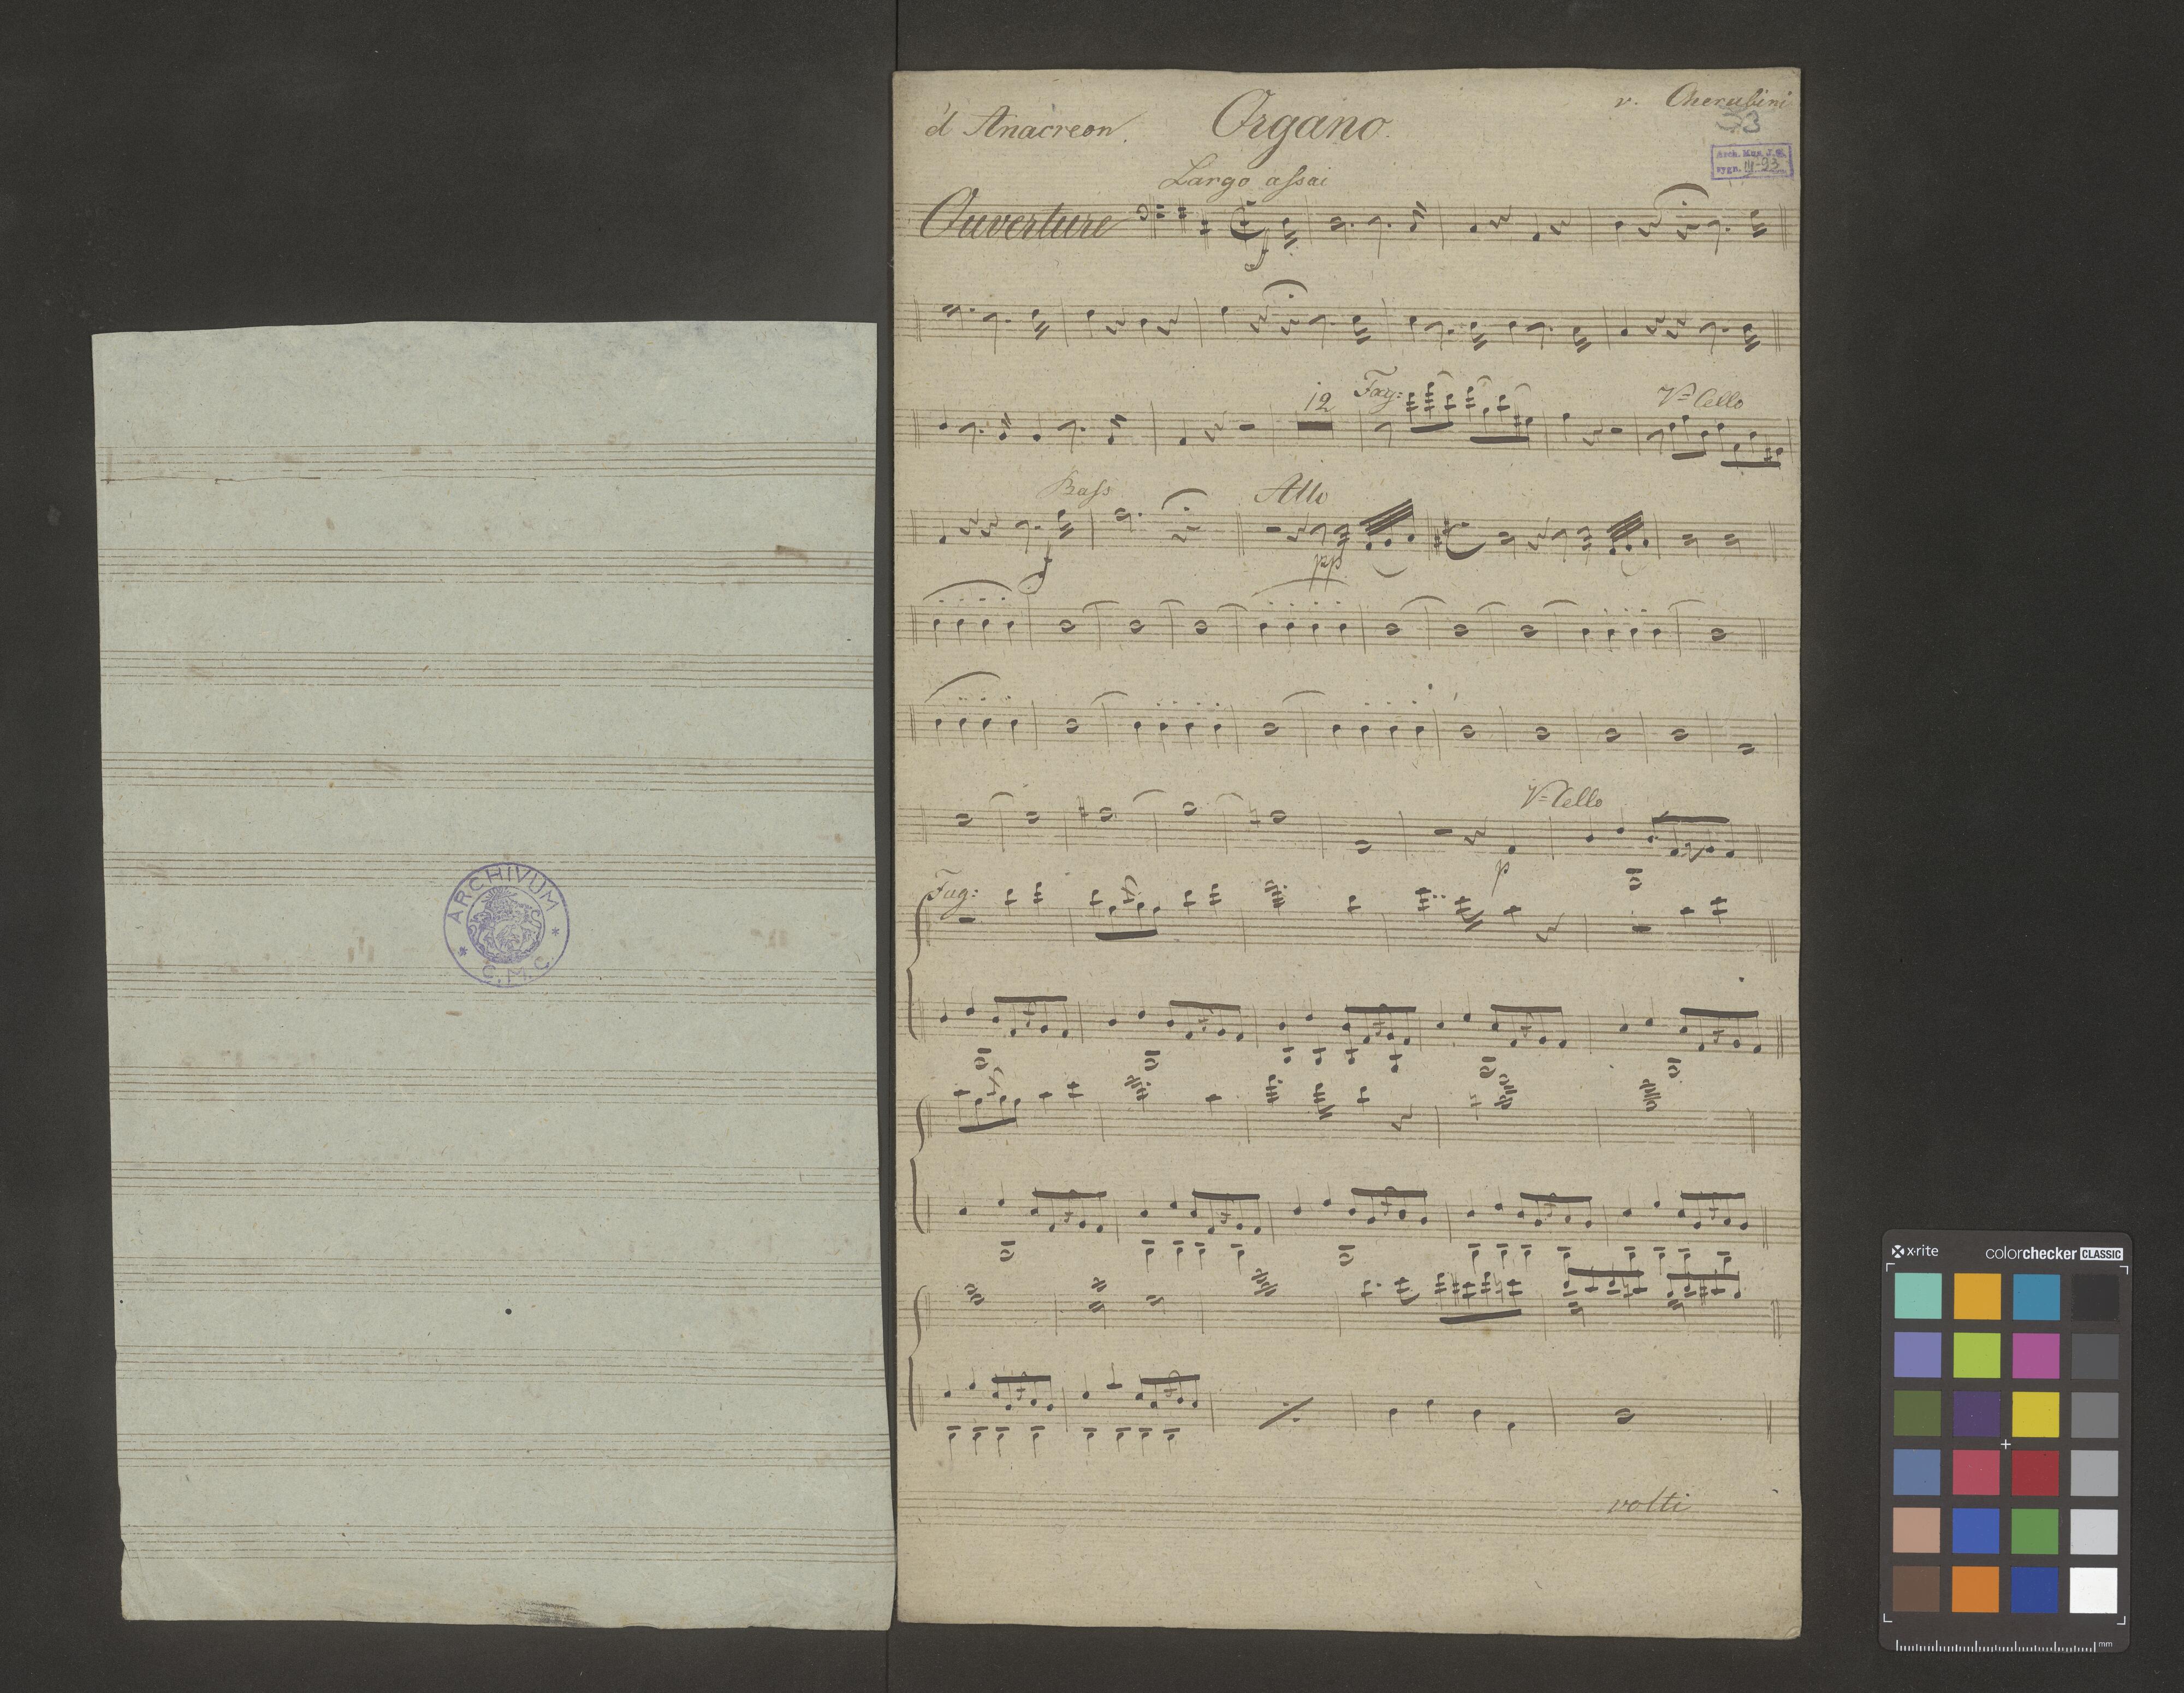 ARCHIVUM
C.M.C.
v. Cherubini
d'Anacreon. Organo.
33
Arch. Mus. J.G.
sygn. IIJ-93
Largo assai
Ouverture
12 Fag: V=Cello
Bass Allo
pp
V=Cello
p
Fag:
volti
x-rite colorchecker CLASSIC
mm